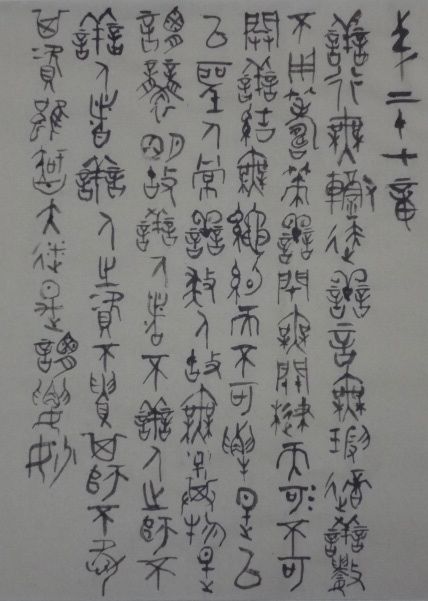 弟二十七章
善行無轍迹善言無瑕謫善數
不用籌策善閉無關楗而可不可
開善結無繩約而不可解是以
以聖人常善救人故無棄物是
謂襲明故善人者不善人之師不
善人者善人之資不貴其師不愛
其資雖智大迷是謂要妙